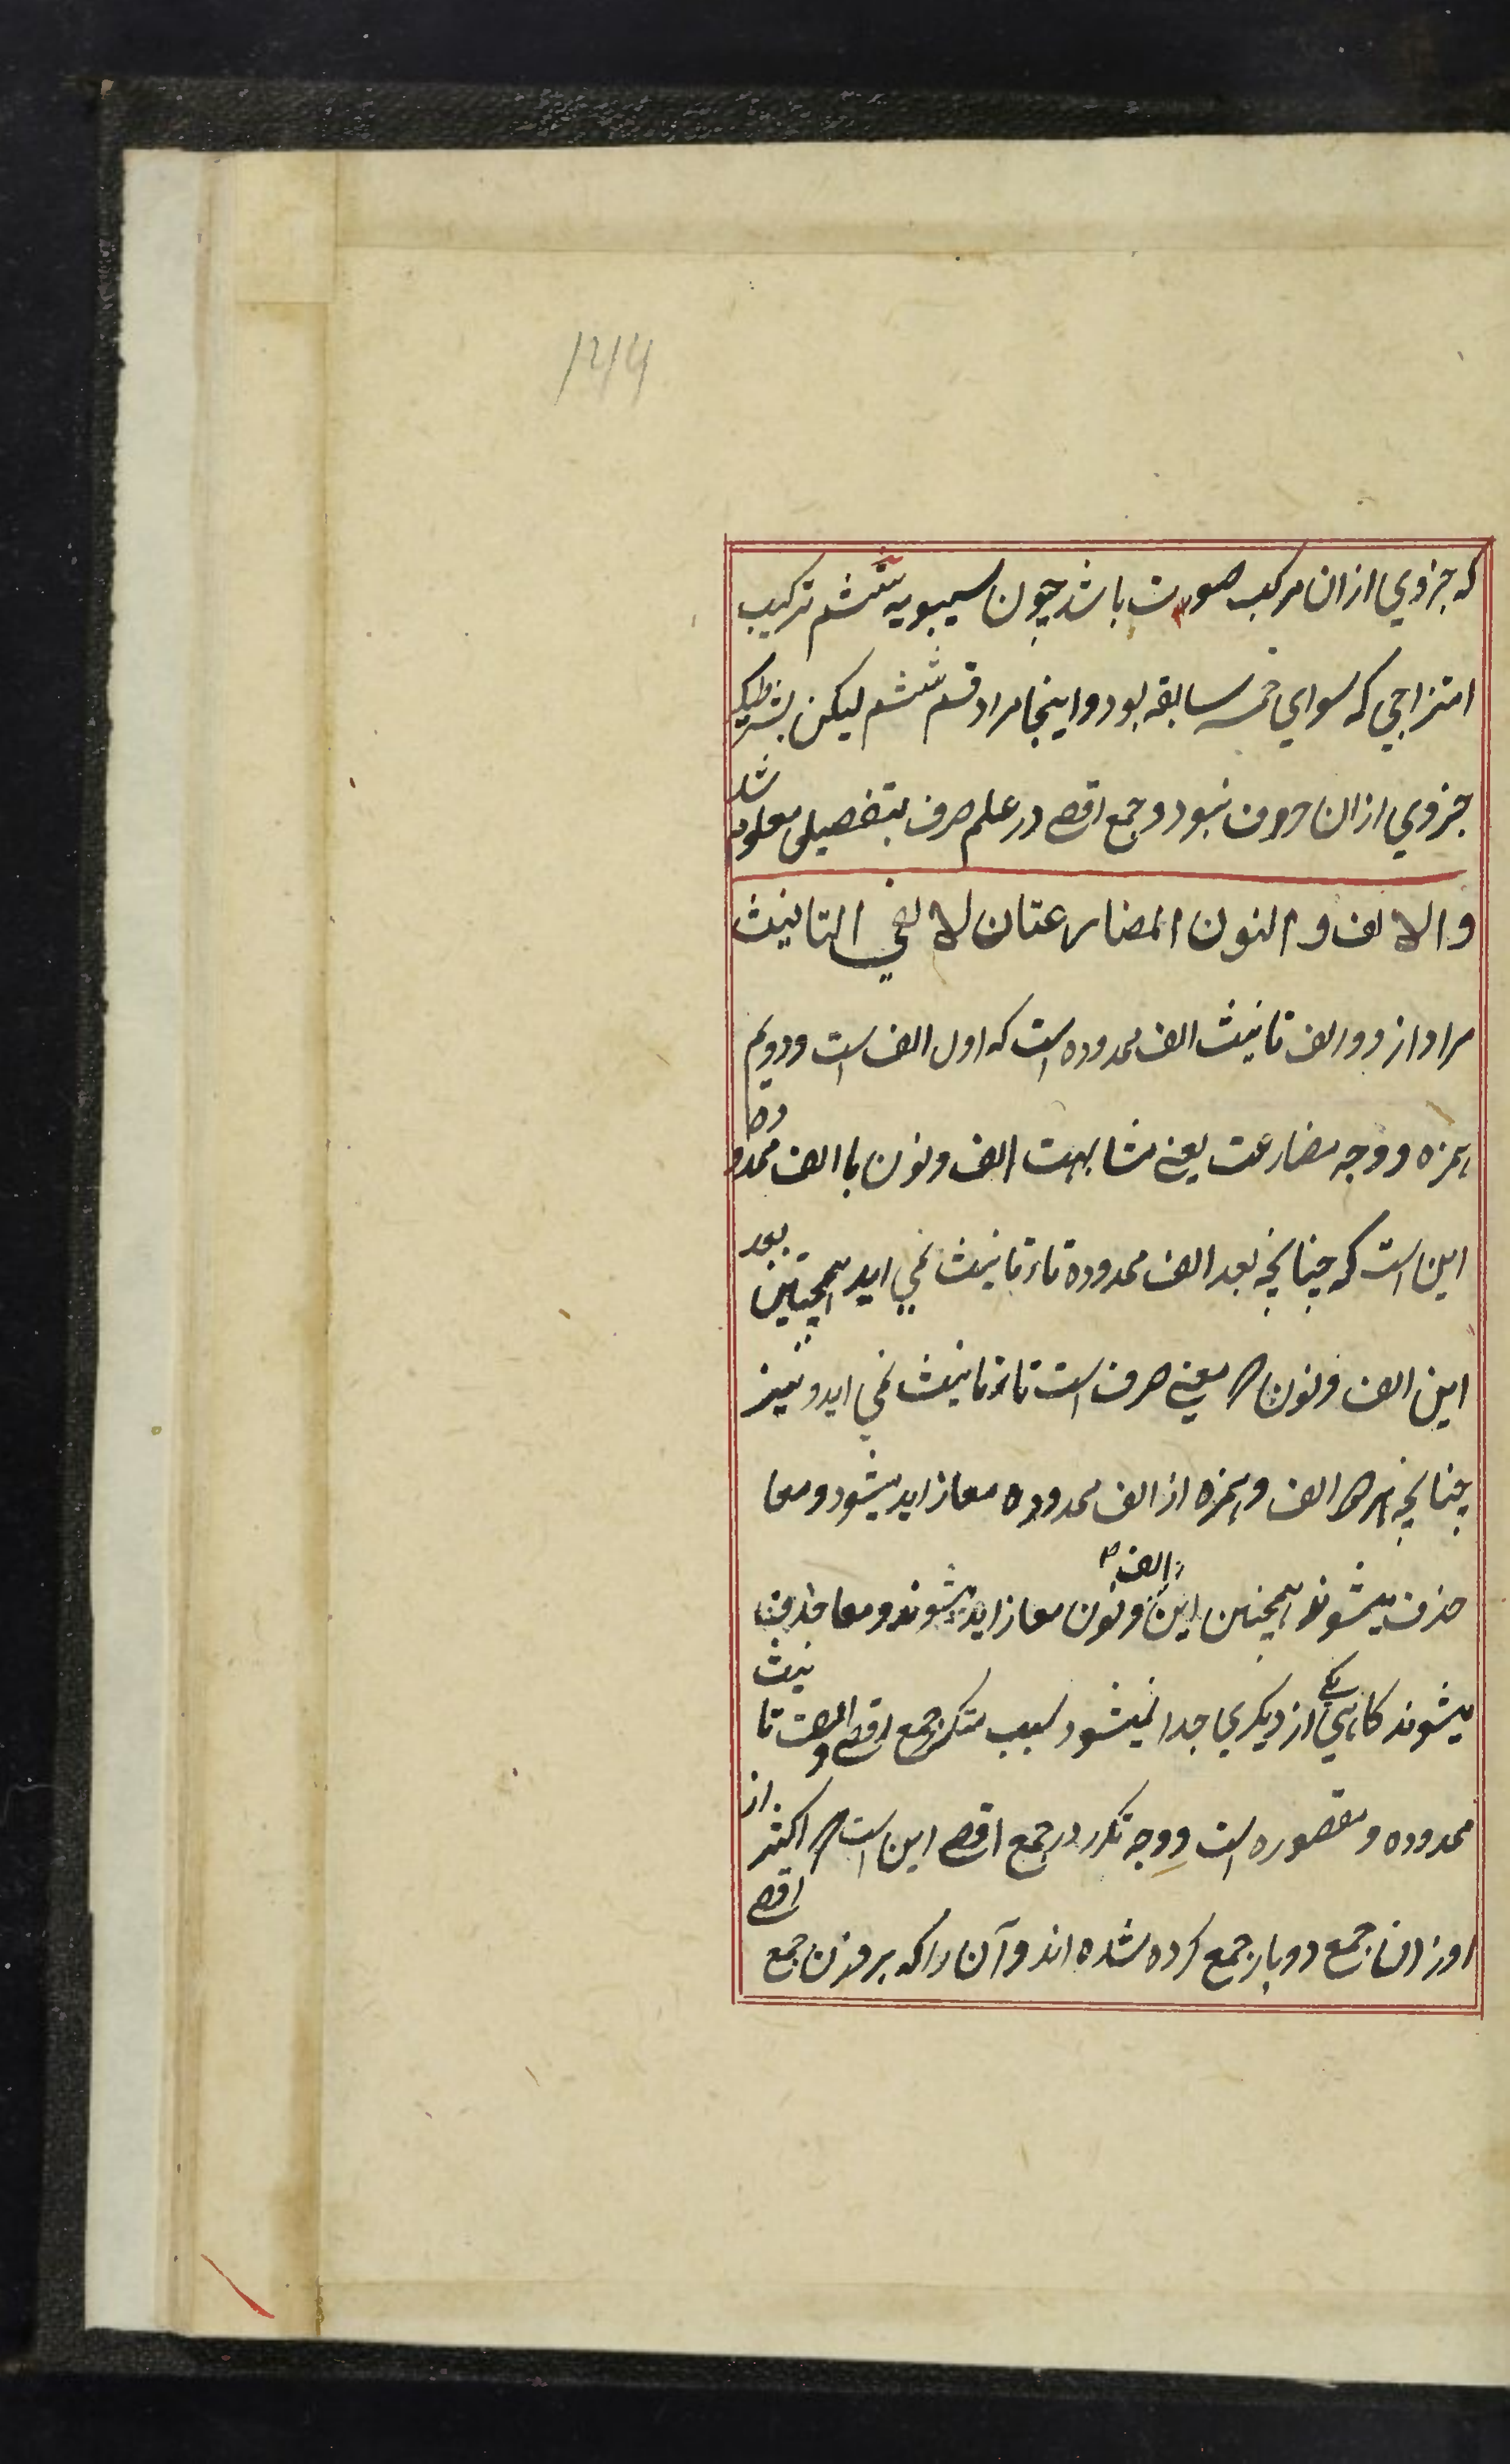 ۱۲۴۹
که جزوي ازان مرکب صوت باشد چون سیبویه ششم ترکیب
امتزاجي که سواي خمسه سابقه بود و اینجا مراد قسم ششم لیکن بشرطیکه
جزوي ازان حرف نبود و جمع اقصے در علم صرف بتفصیل معلوم شد
والالف والنون المضارعتان لالفي التانیث
مراد از دو الف تانیث الف ممدوده است که اول الف است و دویم
همزه و وجه مضارعت یعنے مشابهت الف و نون با الف ممدوده
این است که چنانچه بعد الف ممدوده تاء تانیث نمي اید همچنین بعد
این الف و نون که معنے صرف است تاء تانیث نمي اید و نیز
چنانچه هر دو الف و همزه از الف ممدوده معا زاید میشود و معا
حذف میشوند همچنین این الف و نون معا زاید میشوند و معا حذف
میشوند کاهي یکے از دیکري جدا نمیشود سبب متکرر جمع اقصے و الف تانیث
ممدوده و مقصوره است و وجه تکرر در جمع اقصے این است که اکثر از
اوزان جمع دو بار جمع کرده شده اند و آن را که بر وزن جمع اقصے